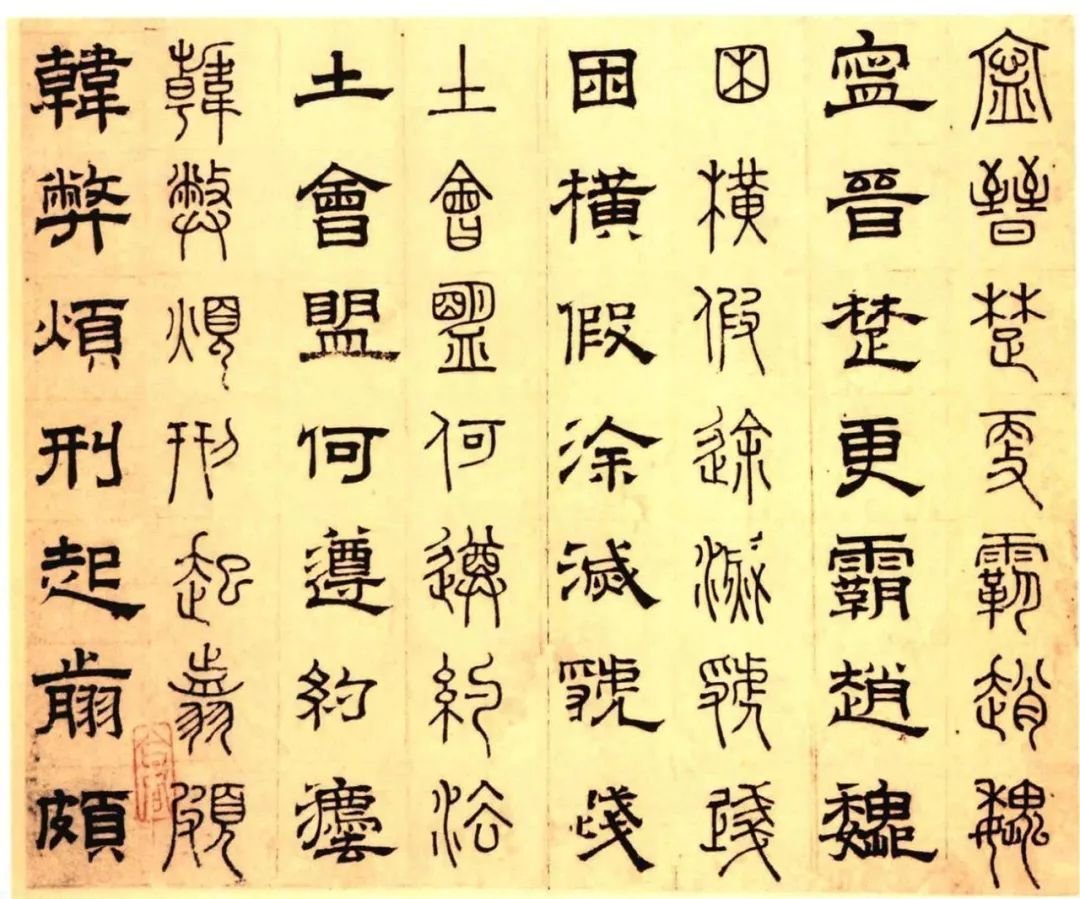 寍晉楚更霸趙魏
寍晉楚更霸趙魏
困橫假途滅虢踐
困橫假涂滅虢踐
土會盟何遵約法
土會盟何遵約灋
韓弊煩刑起翦頗
韓弊煩刑起翦頗